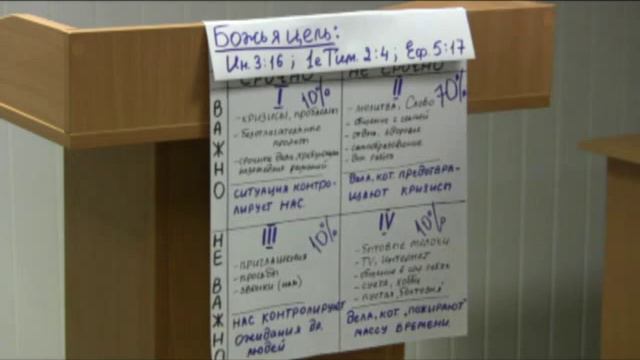 Божья цель:
Ин. 3:16; 1е Тим. 2:4; Еф. 5:17
СРОЧНО НЕ СРОЧНО
ВАЖНО
I 10%
- кризисы, проблемы
- безотлагательные
- срочные дела, требующие
решений
СИТУАЦИЯ КОНТРО-
ЛИРУЕТ НАС
II 70%
- молитва, Слово
- общение с семьёй
- отдых, здоровье
- самообразование
ДЕЛА, КОТ. ПРЕДОТВРА-
ЩАЮТ КРИЗИСЫ
НЕ ВАЖНО
III 10%
- приглашения
- просьбы
- звонки (нам)
НАС КОНТРОЛИРУЮТ
ОЖИДАНИЯ ДР.
ЛЮДЕЙ
IV 10%
- бытовые мелочи
- TV, Интернет
- общение в
- суета, хобби
- пустая болтовня
ДЕЛА, КОТ. „ПОЖИРАЮТ"
МАССУ ВРЕМЕНИ